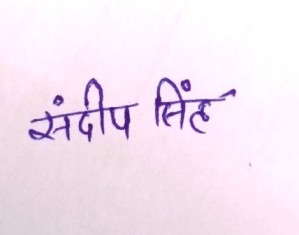 संदीप सिंह